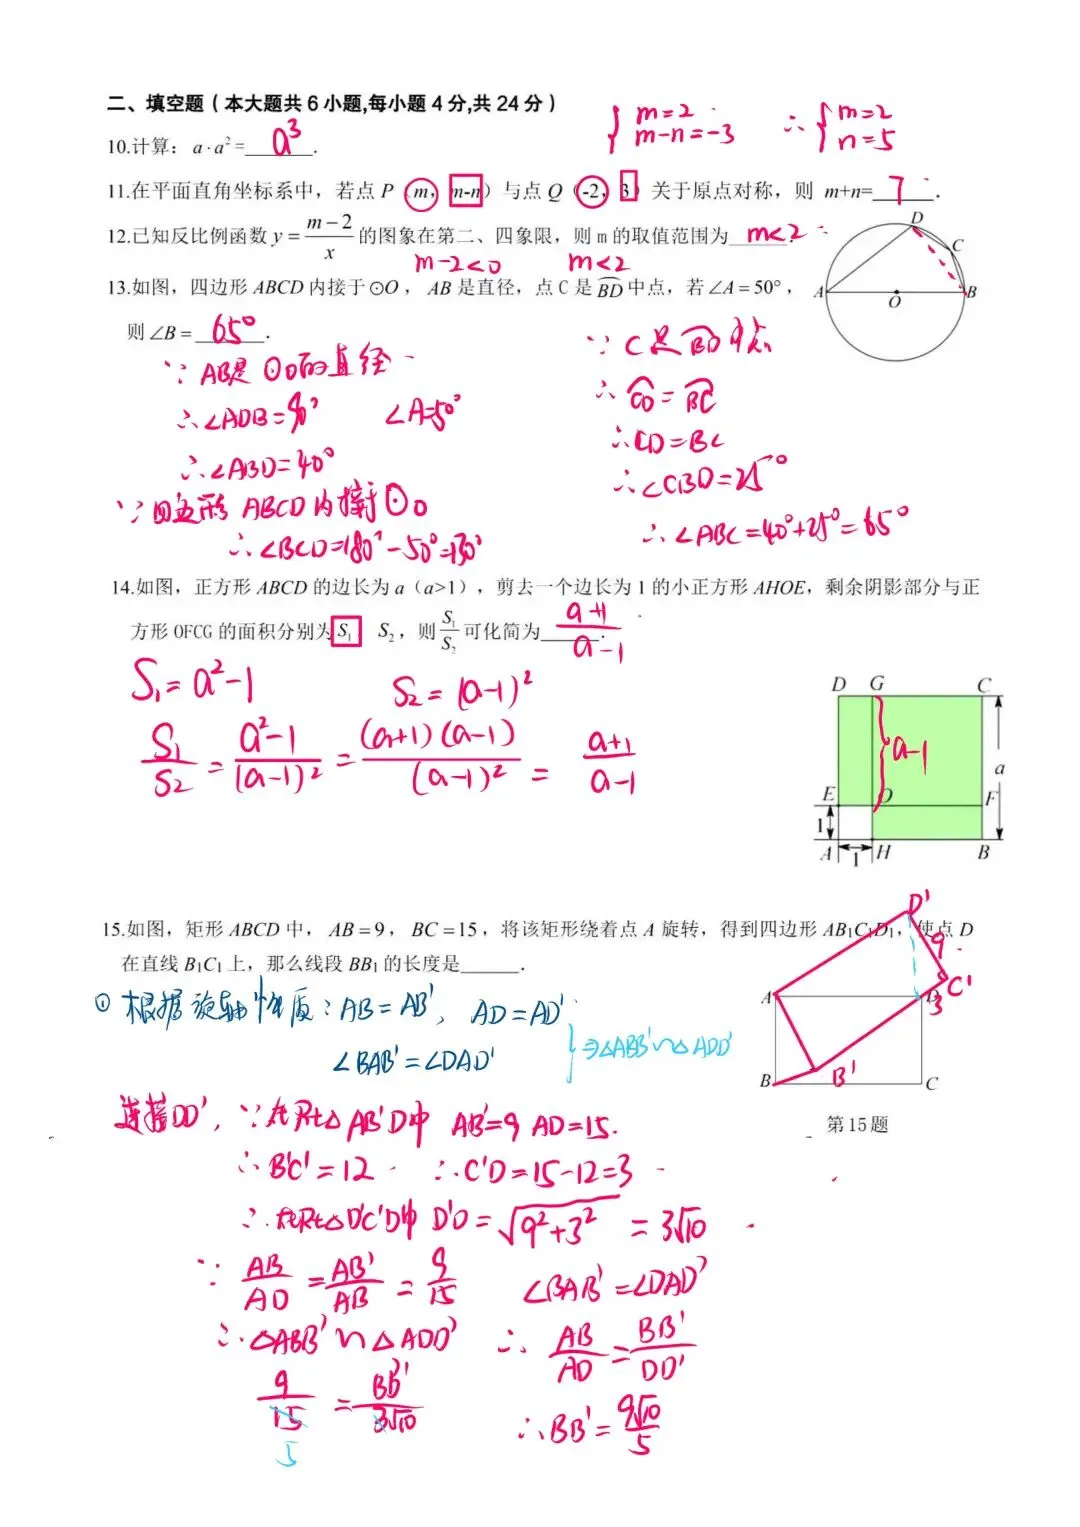 二、填空题（本大题共6小题,每小题4分,共24分）
{ m=2 m-n=-3 ∴ { m=2 n=5
10.计算：a·a²= a³ .
11.在平面直角坐标系中，若点P（m，m-n）与点Q（-2，3）关于原点对称，则 m+n= 7 .
12.已知反比例函数 y=(m-2)/x 的图象在第二、四象限，则m的取值范围为 m<2 .
m-2<0 m<2
13.如图，四边形ABCD内接于⊙O，AB是直径，点C是BD中点，若∠A=50°，
则∠B= 65° .
∵AB是⊙O的直径
∴∠ADB=90° ∠A=50°
∴∠ABD=40°
∵四边形ABCD内接于⊙O
∴∠BCD=180°-50°=130°
∵C是BD中点
∴CD=BC
∴CD=BC
∴∠CBD=25°
∴∠ABC=40°+25°=65°
D
C
A O B
14.如图，正方形ABCD的边长为a（a>1），剪去一个边长为1的小正方形AHOE，剩余阴影部分与正
方形OFCG的面积分别为S₁ S₂，则S₁/S₂可化简为 (a+1)/(a-1) .
S₁=a²-1 S₂=(a-1)²
S₁/S₂=(a²-1)/(a-1)²=(a+1)(a-1)/(a-1)²=(a+1)/(a-1)
D G C
a-1 a
E O F
1
A 1 H B
15.如图，矩形ABCD中，AB=9，BC=15，将该矩形绕着点A旋转，得到四边形AB₁C₁D₁，使点D
在直线B₁C₁上，那么线段BB₁的长度是______.
①根据旋转性质：AB=AB′, AD=AD′
∠BAB′=∠DAD′ } ⇒△ABB′∽△ADD′
D′
9
A D C′
3
B B′ C
第15题
连接DD′, ∵在Rt△AB′D中 AB′=9 AD=15.
∴B′C′=12 ∴C′D=15-12=3
∴在Rt△D′C′D中 D′D=√(9²+3²)=3√10
∵AB/AD=AB′/AB=9/15 ∠BAB′=∠DAD′
∴△ABB′∽△ADD′ ∴AB/AD=BB′/DD′
9/15=BB′/3√10 ∴BB′=9√10/5
5